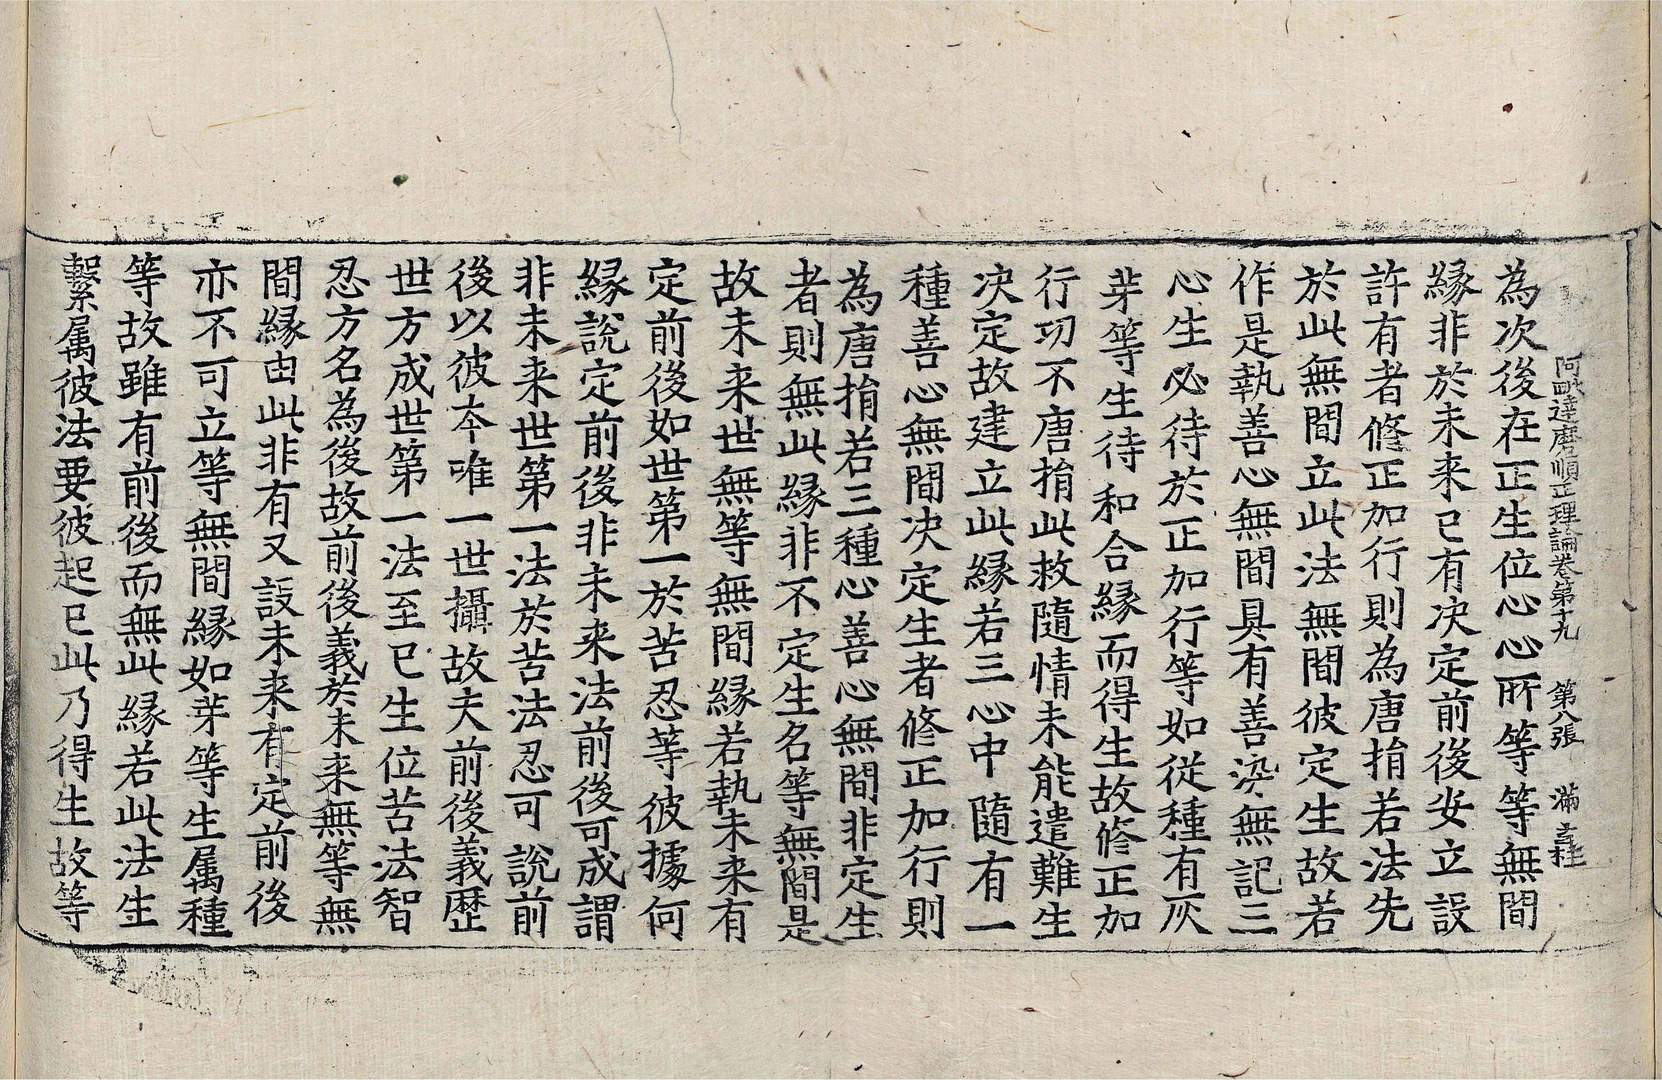 阿毗達磨順正理論卷第十九 第八張 滿
為次後在正生位心心所等等無間
緣非於未来已有决定前後安立設
許有者修正加行則為唐捐若法先
於此無間立此法無間彼定生故若
作是執善心無間具有善染無記三
心生必待於正加行等如從種有灰
芽等生待和合緣而得生故修正加
行功不唐捐此救隨情未能遣難生
决定故建立此緣若三心中隨有一
種善心無間决定生者修正加行則
為唐捐若三種心善心無間非定生
者則無此緣非不定生名等無間是
故未来世無等無間緣若執未来有
定前後如世第一於苦忍等彼據何
緣說定前後非未来法前後可成謂
非未来世第一法於苦法忍可說前
後以彼夲唯一世攝故夫前後義歴
世方成世第一法至已生位苦法智
忍方名為後故前後義於未来無等無
間緣由此非有又設未来有定前後
亦不可立等無間緣如芽等生属種
等故雖有前後而無此緣若此法生
繫属彼法要彼起已此乃得生故等